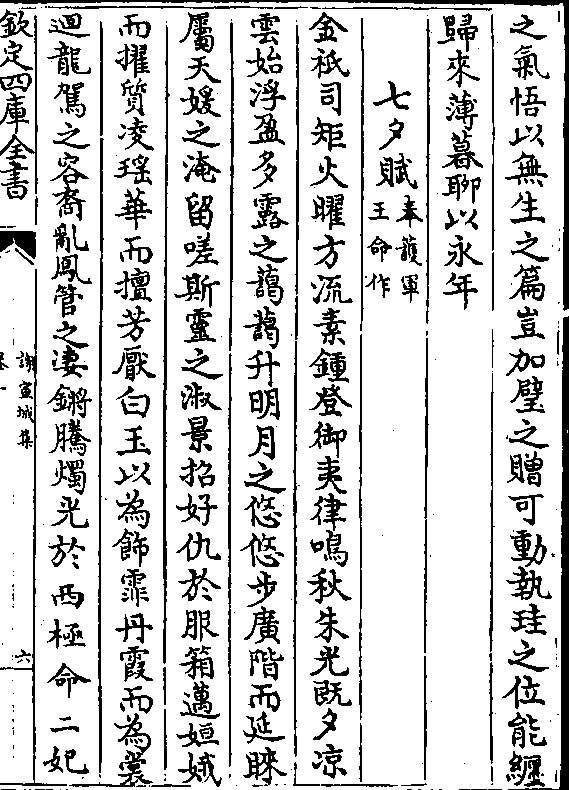 之氣悟以無生之篇豈加璧之贈可動執珪之位能纏
歸來薄暮聊以永年
七夕賦奉護軍王命作
金祇司矩火曜方流素鍾登御夷律鳴秋朱光既夕涼
雲始浮盈多露之藹藹升明月之悠悠步廣階而延睇
屬天媛之淹留嗟斯靈之淑景招好仇於服箱邁姮娥
而擢質凌瑶華而擅芳厭白玉以為飾霏丹霞而為裳
迴龍駕之容裔亂鳳管之淒鏘騰燭光於西極命二妃
欽定四庫全書
謝宣城集
卷一
六